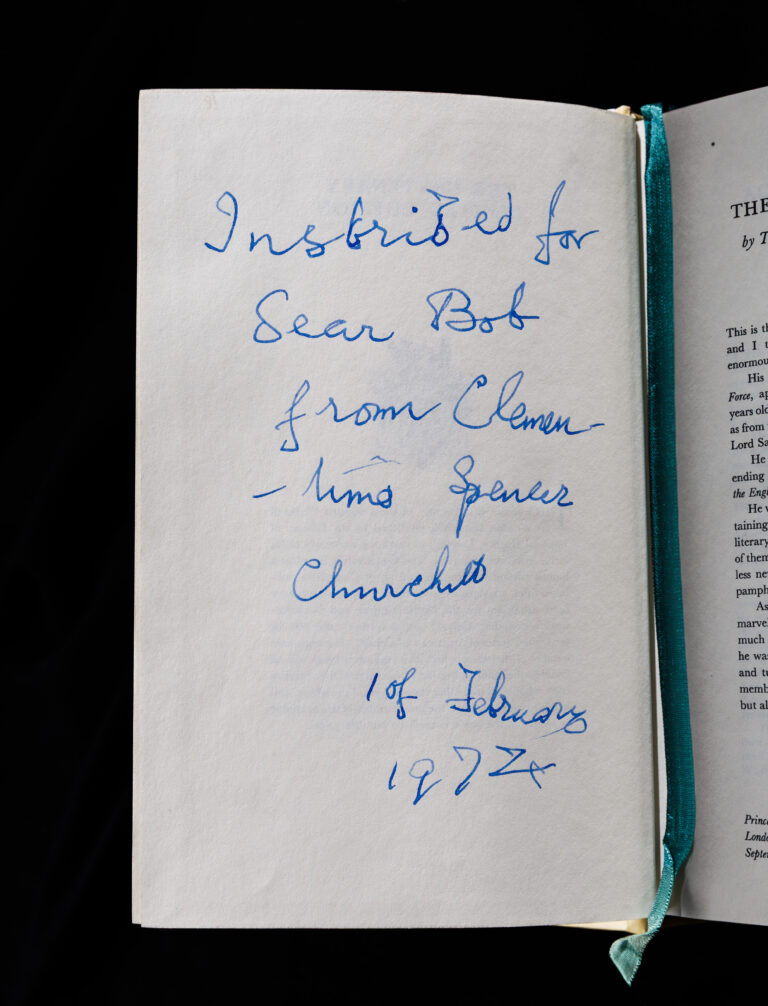 Inscribed for
Dear Bob
from Clemen-
- tine Spencer
Churchill
1 of February
1974
THE
by T
This is th
and I t
enormou
His
Force, ap
years old
as from
Lord Sa
He
ending
the Eng
He w
taining
literary
of them
less ne
pamph
As
marve
much
he was
and tu
memb
but al
Princ
Londo
Septe